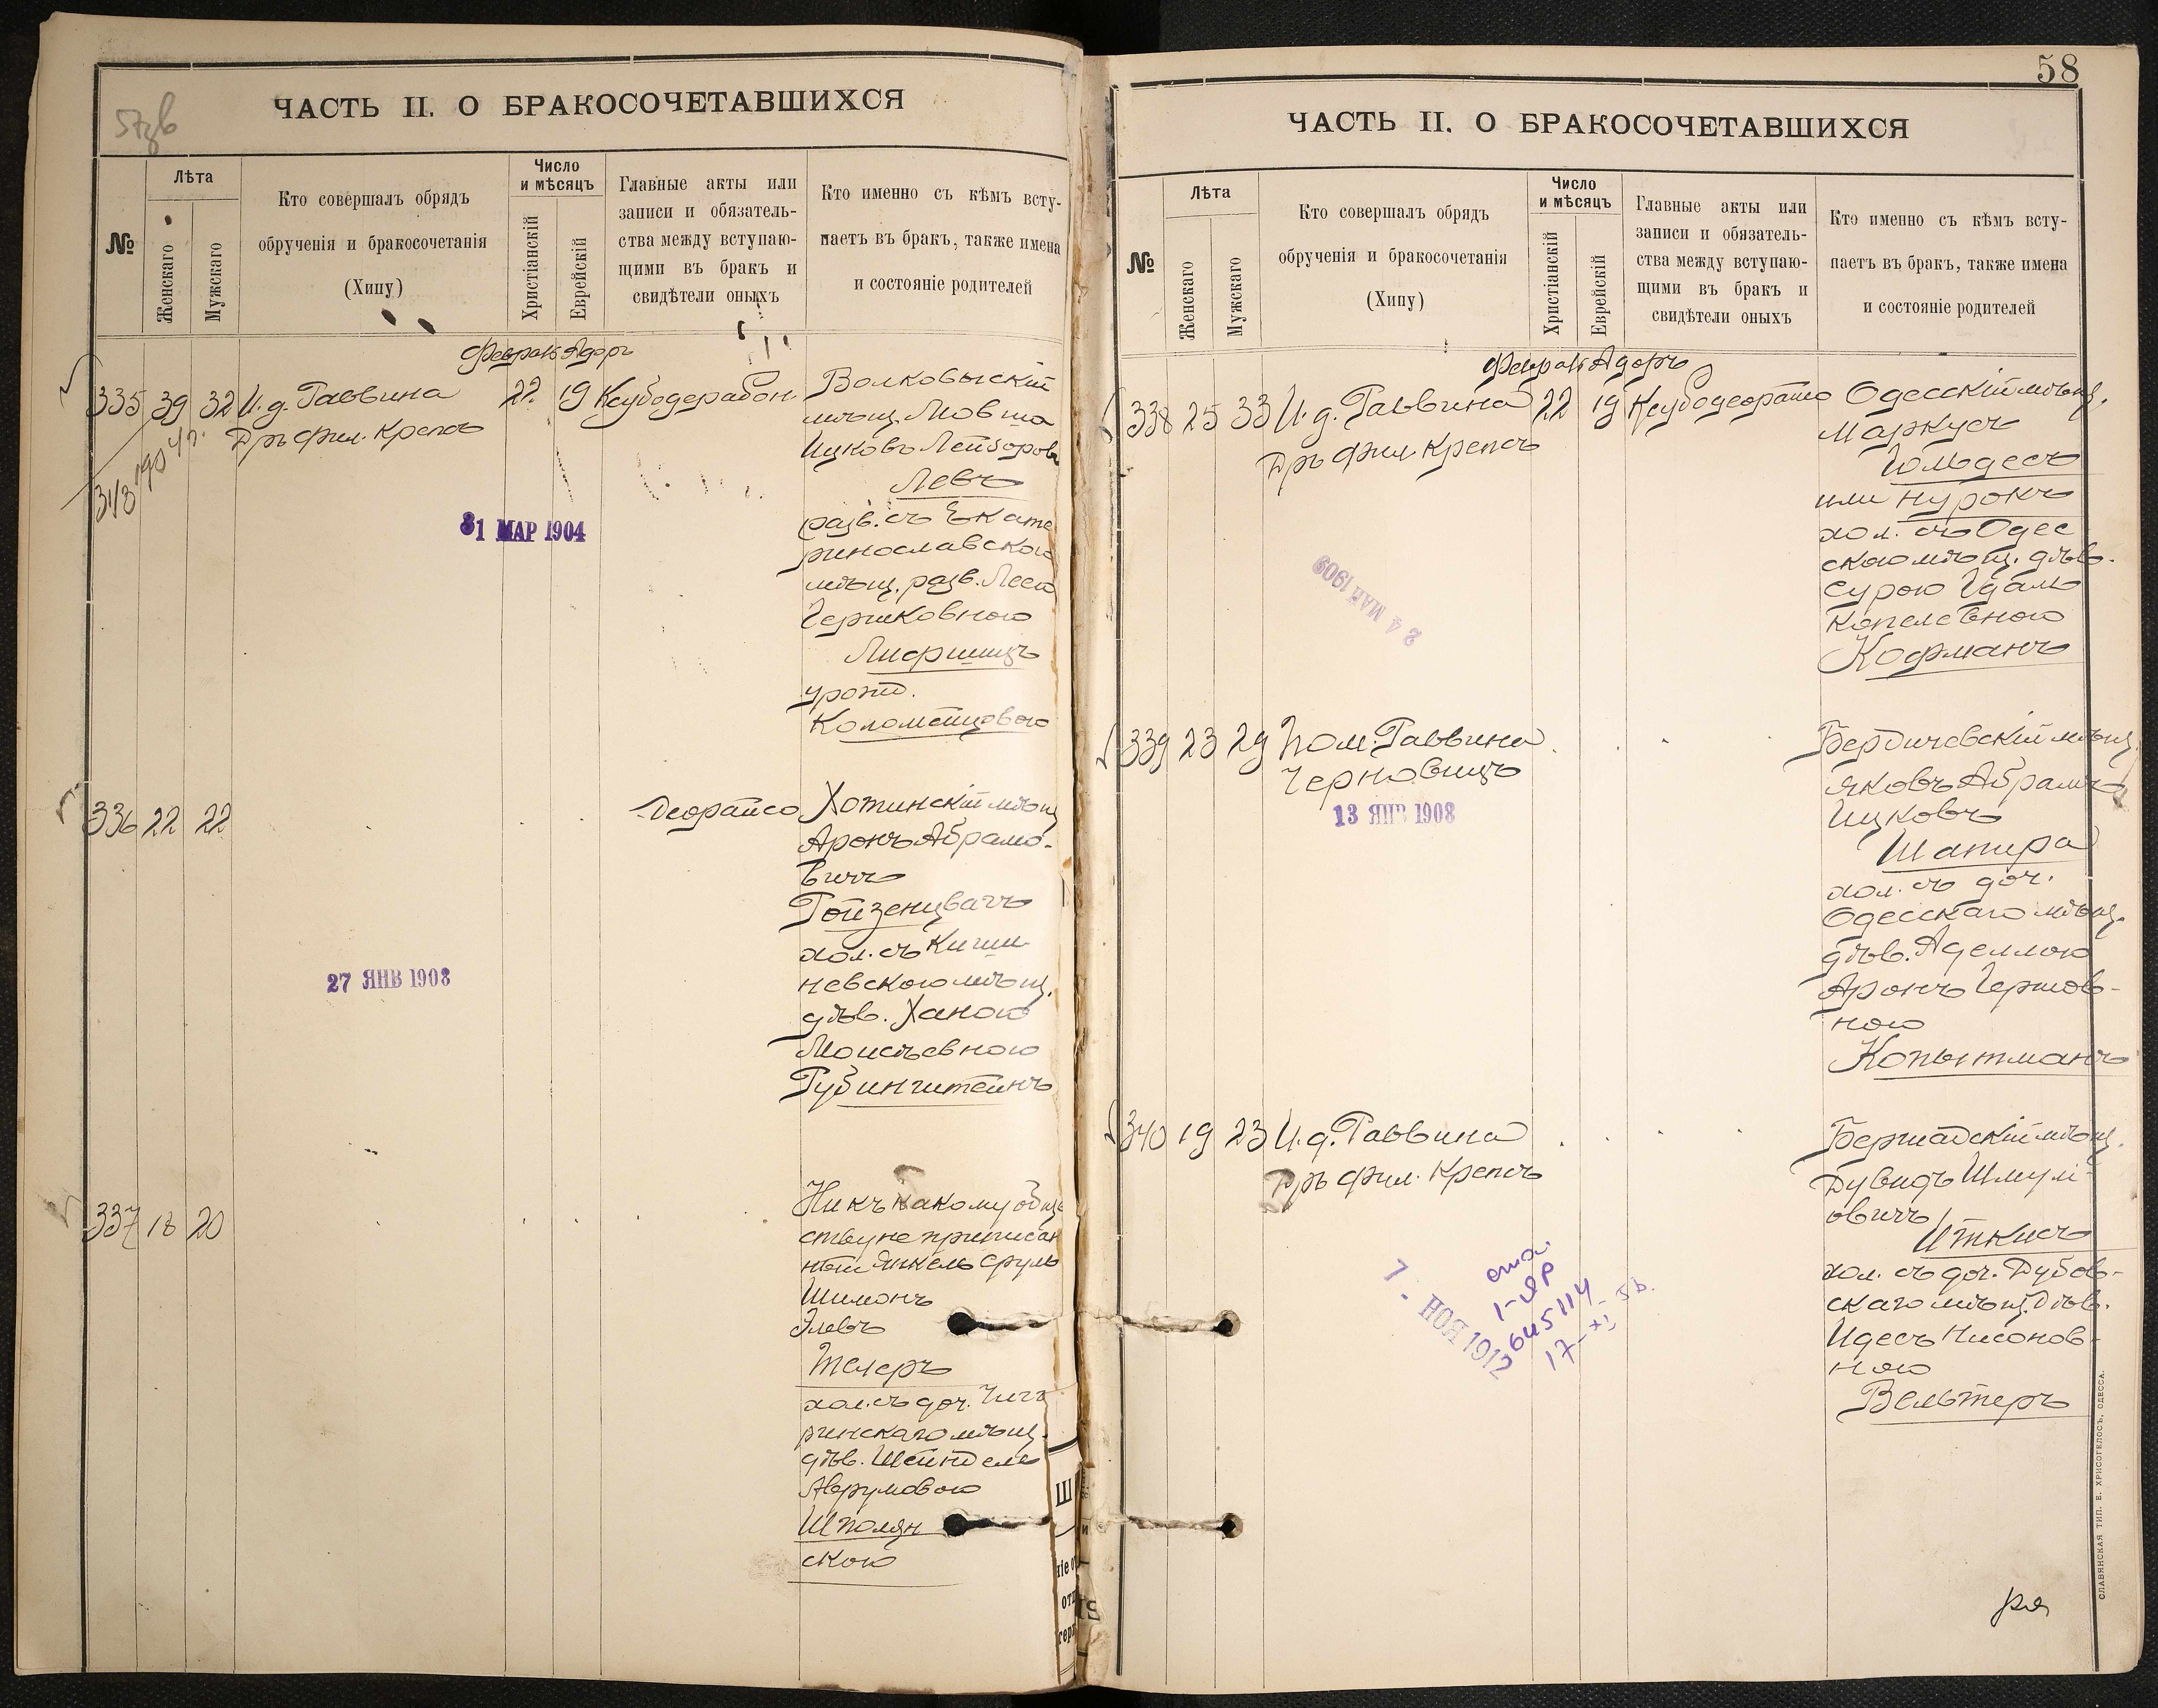 57об
ЧАСТЬ II. О БРАКОСОЧЕТАВШИХСЯ
№
Лѣта
Женскаго
Мужскаго
Кто совершалъ обрядъ
обрученія и бракосочетанія
(Хипу)
Число
и мѣсяцъ
Христіанскій
Еврейскій
Главные акты или
записи и обязатель-
ства между вступаю-
щими въ бракъ и
свидѣтели оныхъ
Кто именно съ кѣмъ всту-
паетъ въ бракъ, также имена
и состояніе родителей
Феврал Адоръ
335 39 32 И. д. Раввина 22 19 Ксубодерабон.
Дръ Фил. Крепсъ
318
31 МАР 1904
Волковыскій
мѣщ. Мовша
Ицковъ Лейзоровъ
Левъ
разв. съ Екате
ринославскою
мѣщ. разв. Леею
Герцковною
Лифшицъ
урожд.
Коломейцовою
336 22 22 Деорайсо
27 ЯНВ 1908
Хотинскій мѣщ
Аронъ Абрамо-
вичъ
Ройзенцвагъ
хол. съ Киши
невскою мѣщ.
дѣв. Ханою
Моисѣевною
Рубинштейнъ
337 18 20
Ни къ какому общ
ству не приписан
ный Янкель Сруль
Шимонъ
Элевъ
Телеръ
хол. съ доч. Чиги
ринскаго мѣщ.
дѣв. Шейндель
Аврумовою
Шполян
скою
58
ЧАСТЬ II. О БРАКОСОЧЕТАВШИХСЯ
№
Лѣта
Женскаго
Мужскаго
Кто совершалъ обрядъ
обрученія и бракосочетанія
(Хипу)
Число
и мѣсяцъ
Христіанскій
Еврейскій
Главные акты или
записи и обязатель-
ства между вступаю-
щими въ бракъ и
свидѣтели оныхъ
Кто именно съ кѣмъ всту-
паетъ въ бракъ, также имена
и состояніе родителей
Феврал Адоръ
338 25 33 И. д. Раввина 22 19 Ксубодеорайсо
Дръ Фил. Крепсъ
24 МАЙ 1909
Одесскій мѣщ.
Маркусъ
Гольдесъ
или Нурокъ
хол. съ Одес
скою мѣщ. дѣв.
Сурою Гдаль
Копелевною
Кофманъ
339 23 29 Пом. Раввина
Черновицъ
13 ЯНВ 1908
Бердичевскій мѣщ.
Яковъ Абрамъ
Ицковъ
Шапира
хол. съ доч.
Одесскаго мѣщ.
дѣв. Аделлою
Аронъ Гершов-
ною
Копытманъ
340 19 23 И. д. Раввина
Дръ Фил. Крепсъ
7 - НОЯ 1912
645114
17-XI
Бершадскій мѣщ.
Дувидъ Шмуль-
овичъ
Иткисъ
хол. съ доч. Дубов-
скаго мѣщ. дѣв.
Идесъ Нисонов-
ною
Вельтеръ
СЛАВЯНСКАЯ ТИП. Е. ХРИСОГЕЛОСЪ, ОДЕССА.